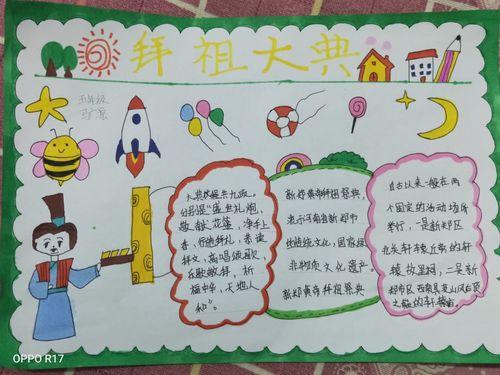 拜祖大典
五年级
大典议程共九项。
分别是"盛世礼炮、
敬献花篮、净手上
香、行施拜礼、恭读
拜文、高唱颂歌、
乐舞敬拜、祈
福中华、天地人
和"。
新郑黄帝拜祖祭典,
是河南省新郑市
地传统文化,国家级
非物质文化遗产。
新郑黄帝拜祖祭典
自古以来一般在两
个固定的活动场所
举行,一是新郑区
北关轩辕丘前的轩
辕故里祠,二是新
郑市区西南具茨山风后顶
OPPO R17